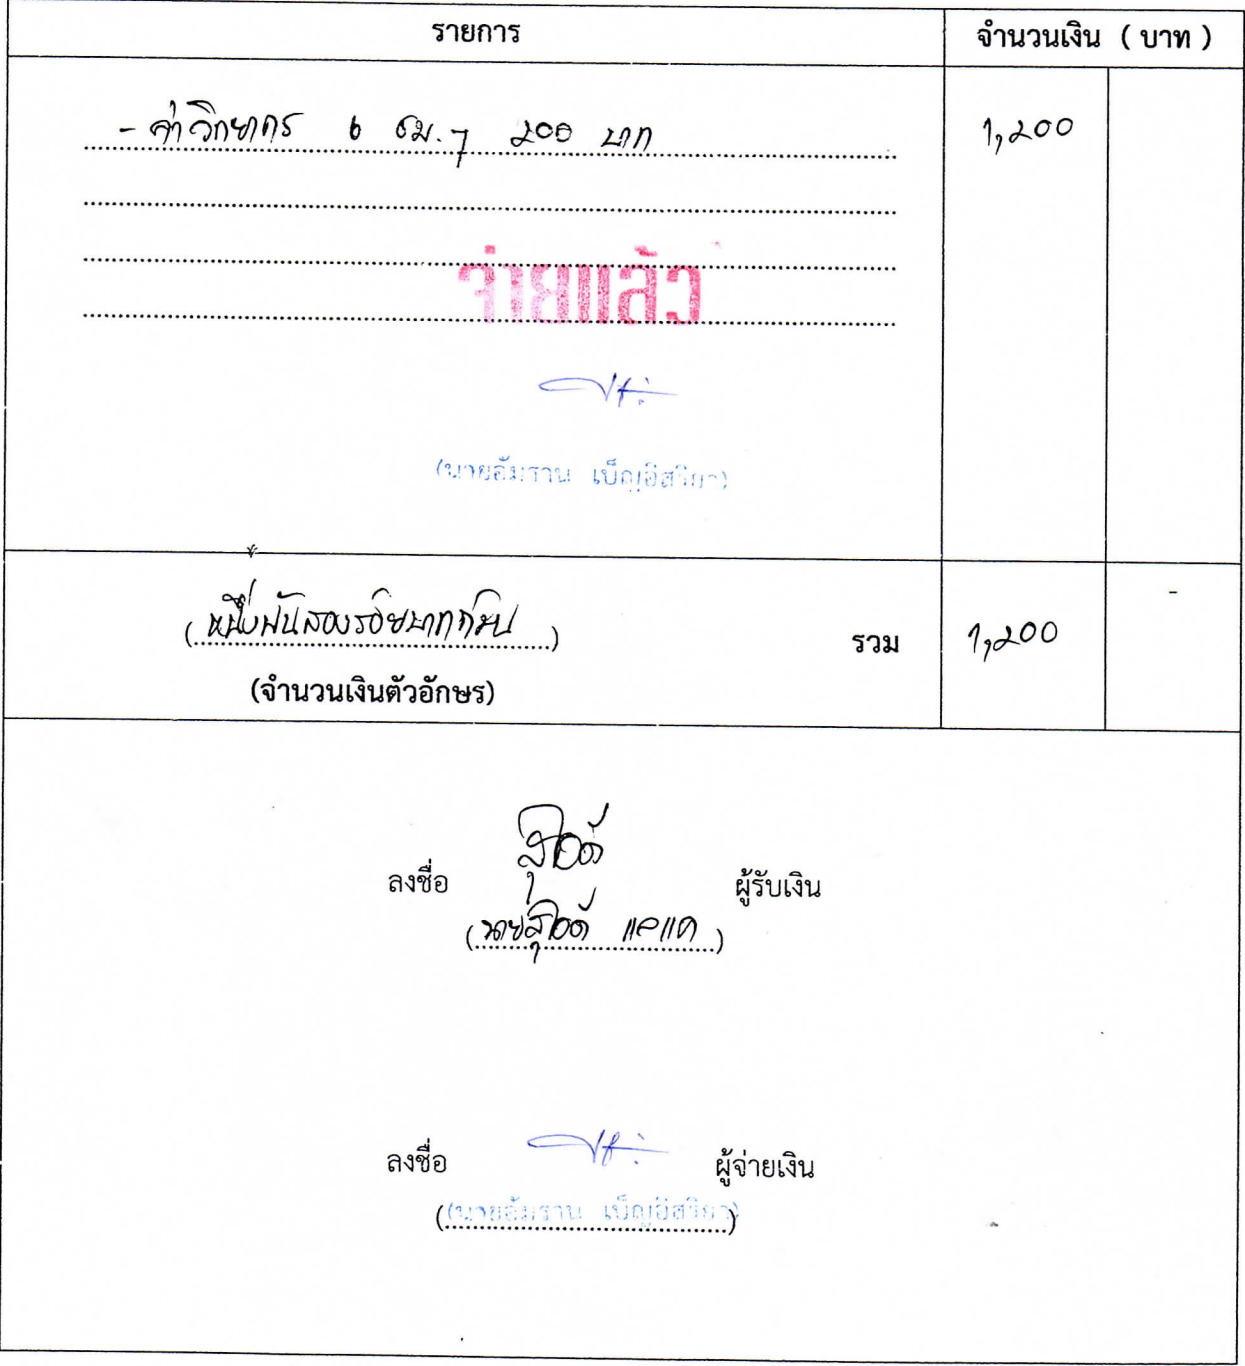 รายการ จำนวนเงิน ( บาท )
- ค่าวิทยากร 6 ชม. ๆ 200 บาท 1,200
จ่ายแล้ว
(นายอัมราน เบ็ญอิสริยา)
( หนึ่งพันสองร้อยบาทถ้วน ) รวม 1,200 -
(จำนวนเงินตัวอักษร)
ลงชื่อ ผู้รับเงิน
( นาย )
ลงชื่อ ผู้จ่ายเงิน
(นายอัมราน เบ็ญอิสริยา)